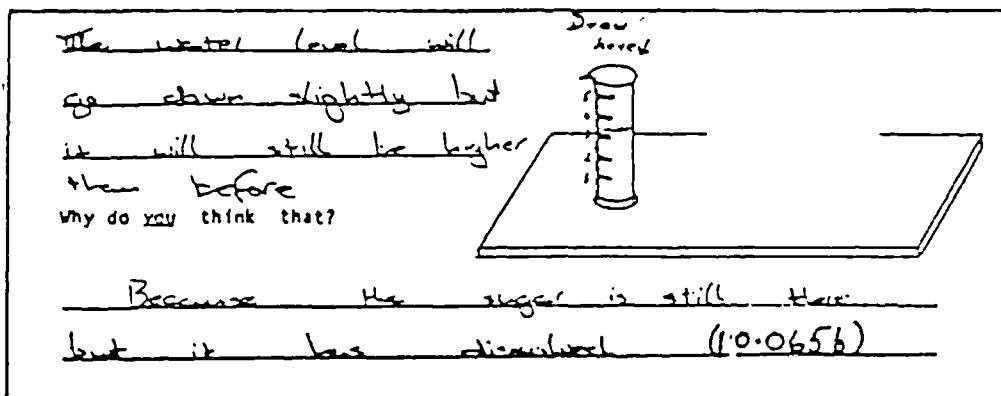 Draw
here
The water level will
go down slightly but
it will still be higher
then before
Why do you think that?
Because the sugar is still there
but it has dissolved (1.0.0656)